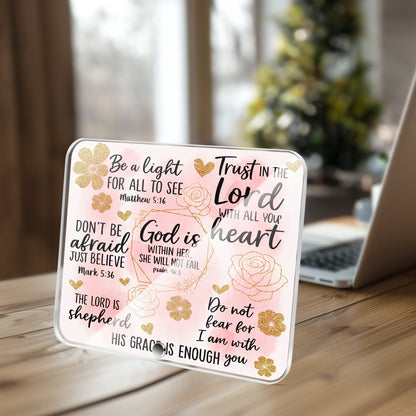 Be a light
FOR ALL TO SEE
Matthew 5:16
TRUST IN THE
Lord
WITH ALL YOU
heart
DON'T BE
afraid
JUST BELIEVE
Mark 5:36
God is
WITHIN HER,
SHE WILL NOT FAIL
psalm 46:5
THE LORD IS
shepherd
Do not
fear for
I am with
you
HIS GRACE IS ENOUGH